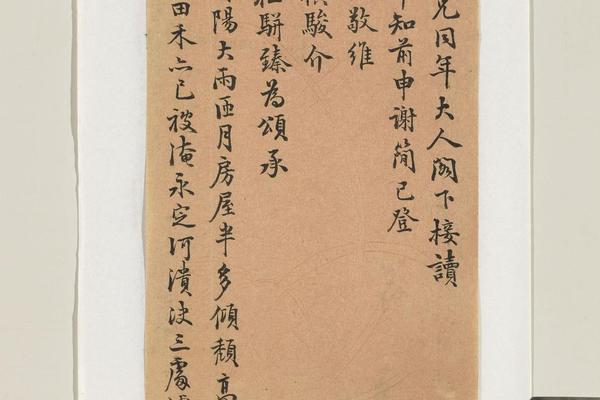 兄同年大人閣下接讀
知前申謝簡已登
敬維
駿介
駢臻為頌承
陽大雨匝月房屋半多傾頹高
田禾亦已被淹永定河潰決三處